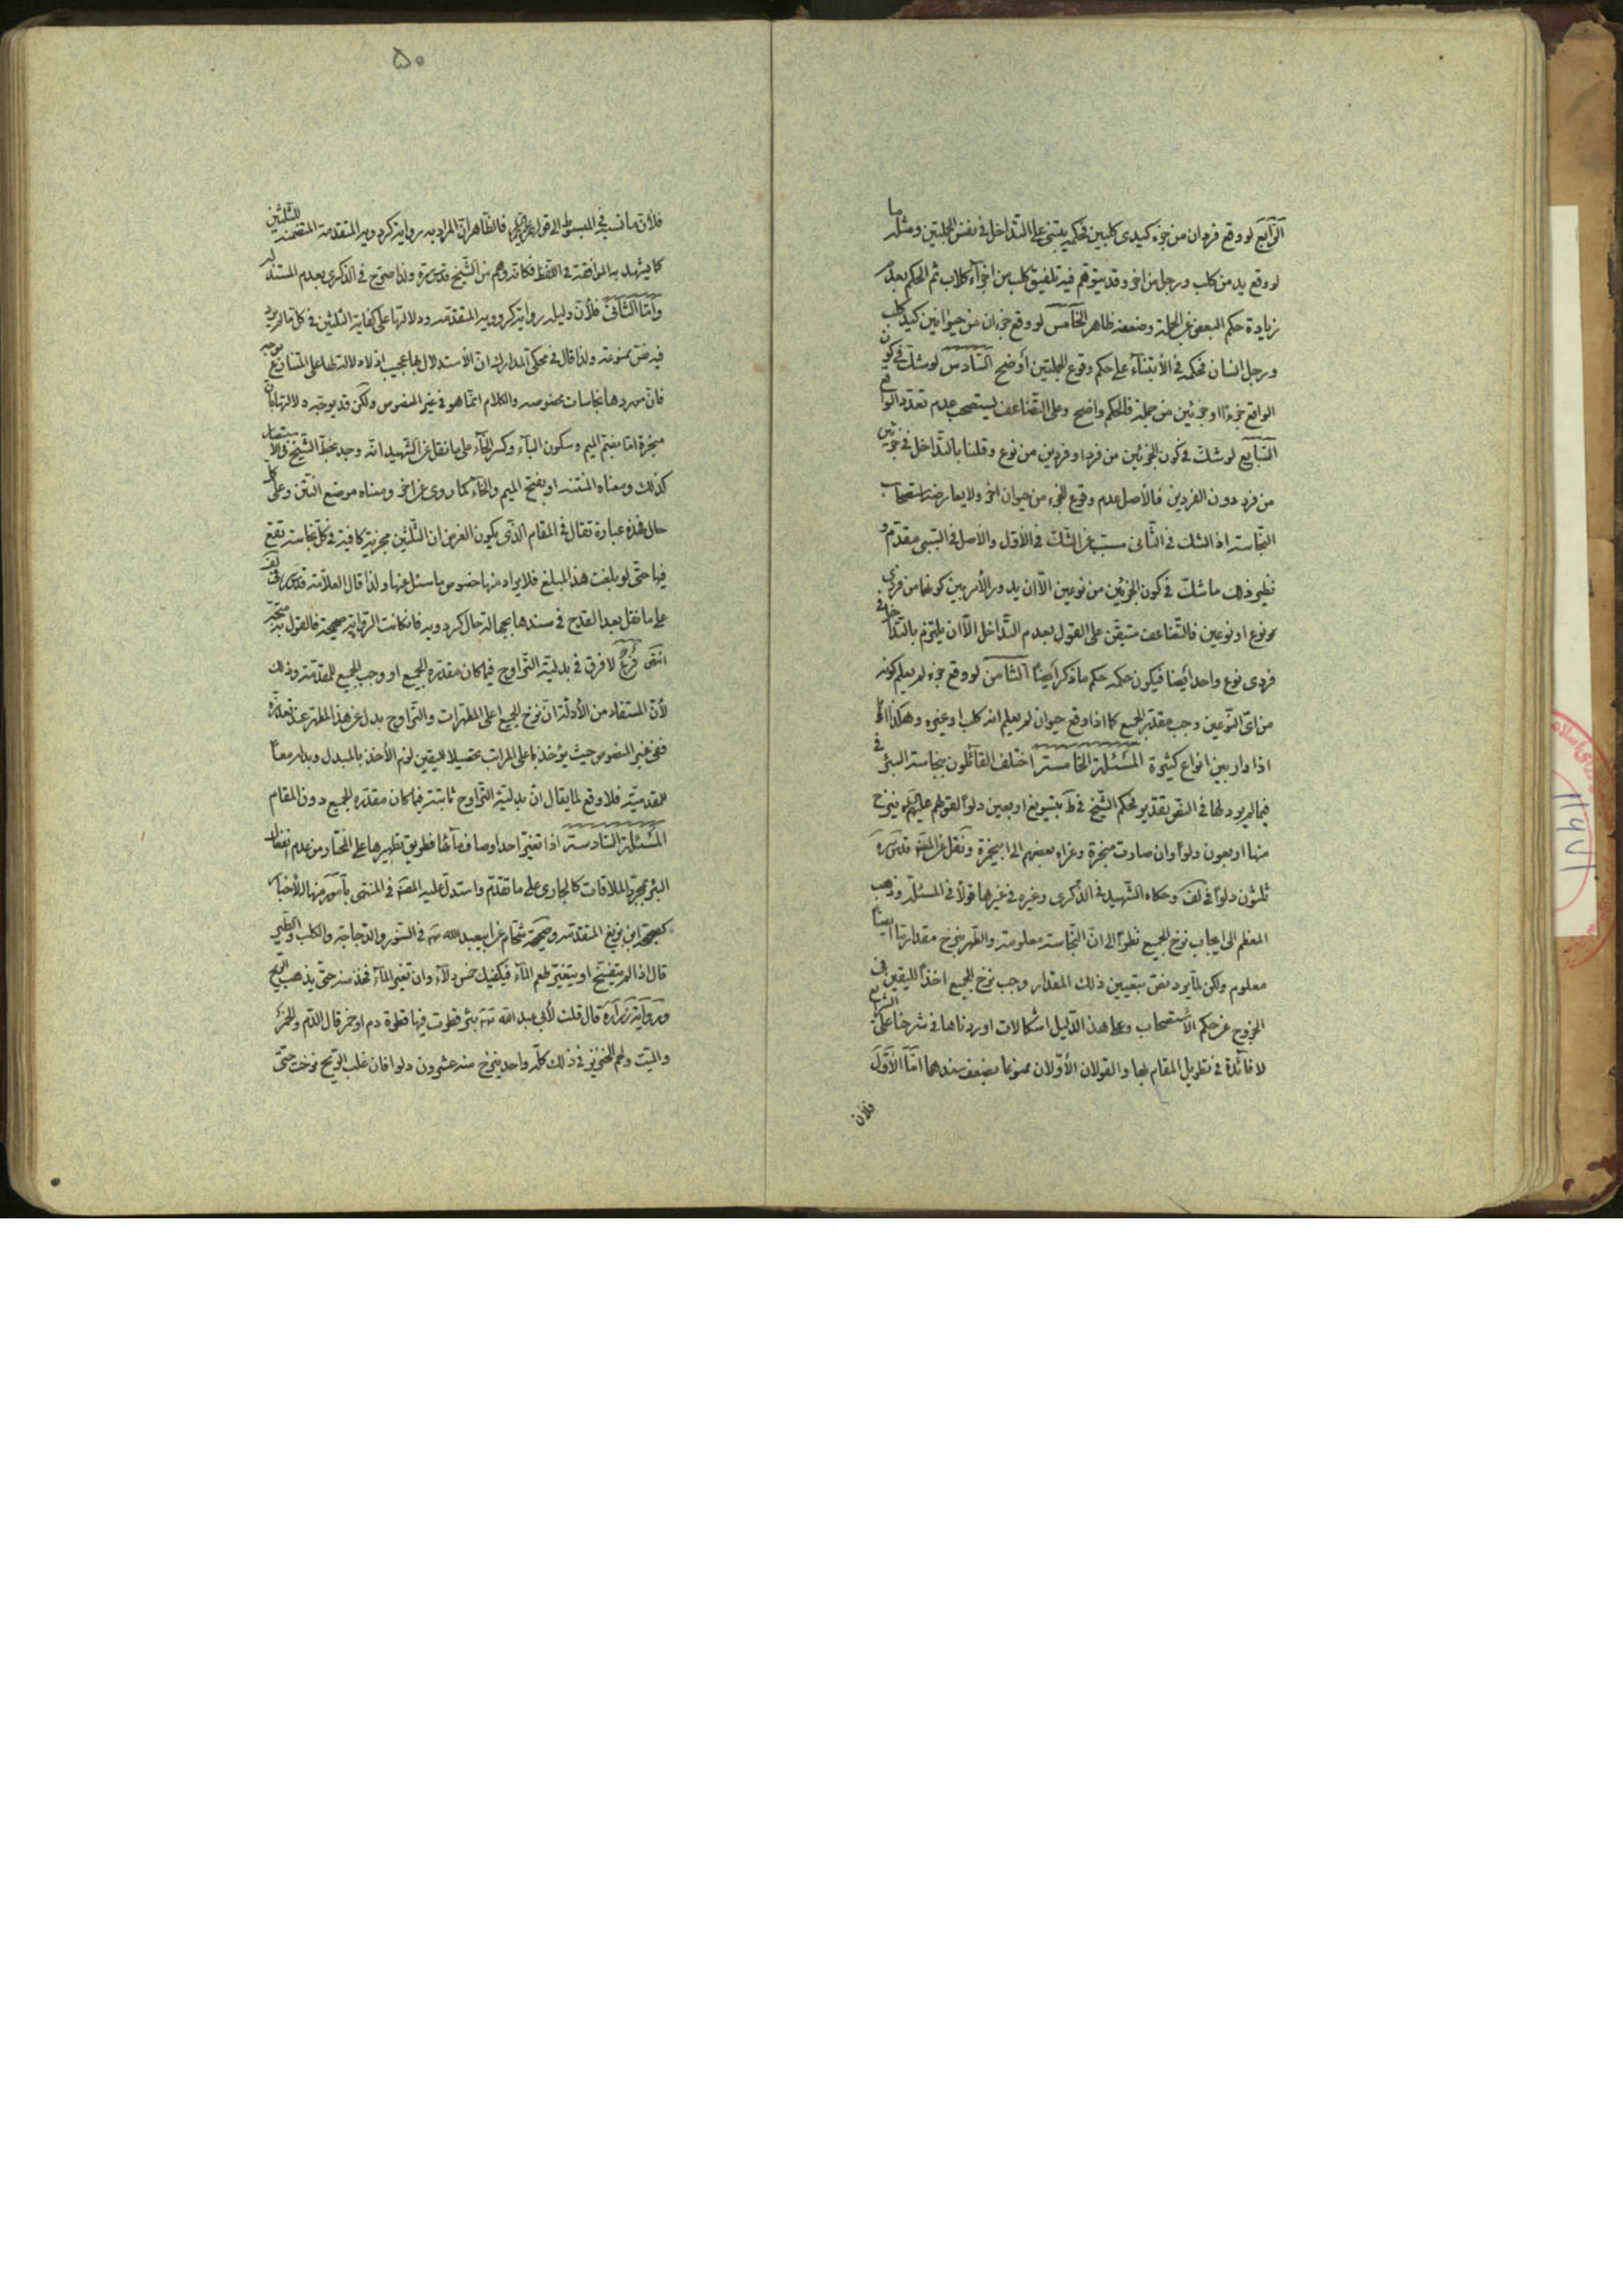 الرّابع لو وقع فردان من جزء كيدى كلبين فحكمه يبتنى على التداخل فى نفس الجملتين ومثله ما
لو وقع يد من كلب ورجل من اخر وقد يتوهّم فيه تلفيق كلب من اجزآء كلاب ثم الحكم بعدم
زيادة حكم البعض عن الجملة وضعفه ظاهر الخامس لو وقع جزءان من حيوانين كيد كلب
ورجل انسان فحكمه فى الأبتناء على حكم وقوع الجملتين أوضح السّادس لو شكّ فى كون
الواقع جزءًا او جزئين من جملة فالحكم واضح وعلى التّضاعف يستصحب عدم تعدّد الواقع
السّابع لو شكّ فى كون الجزئين من فرد او فردين من نوع وقلنا بالتّداخل فى جزئين
من فرد دون الفردين فالأصل عدم وقوع الجزء من حيوان اخر ولا يعارضه استصحاب
النّجاسة اذ الشك فى الثّانى مسبّب عن الشّكّ فى الأوّل والأصل فى السّببى مقدّم و
نظير ذلك ما شكّ فى كون الجزئين من نوعين الّا ان يدور الأمر بين كونهما من فردى
نوع او نوعين فالتّضاعف متيقّن على القول بعدم التّداخل الّا ان يلتزم بالتّداخل فى
فردى نوع واحد أيضا فيكون حكمه حكم ما ذكر أيضًا الثّامن لو وقع جزء لم يعلم كونه
من اىّ النّوعين وجب مقدّر الجميع كما اذا وقع حيوان لم يعلم انه كلب او غيره وهكذا
اذا دار بين انواع كثيرة المسئلة الخامسة اختلف القائلون بنجاسة البئر فى
فيما لم يرد لها فى النّص تقدير فحكم الشّيخ فى ط بتسويغ اربعين دلوًا لقولهم ينزح
منها اربعون دلوًا وان صارت مبخرة وعزاه بعضهم الى ابن حمزة ونقل عن المصنّف قدّس سرّه
ثلثون دلوًا فى لف وحكاه الشّهيد فى الذّكرى وغيره فى غيرها قولًا فى المسئلة وذهب
المعظم الى ايجاب نزح الجميع نظرًا الى انّ النّجاسة معلومة والطّهر بنزح مقدار ما ايضًا
معلوم ولكن لمّا لم يرد نصّ بتعيين ذلك المقدار وجب نزح الجميع اخذًا لليقين فى
الخروج عن حكم الأستصحاب وعلى هذا الدّليل اشكالات اوردناها فى شرحنا على الشرايع
لا فائدة فى تطويل المقام بها والقولان الأوّلان ممنوعا بضعف سندهما امّا الأوّل
فلأن
۵۰
فلأن ما نسبه فى المبسوط الى قولهم عليهم السّلام فالظّاهر انّ المراد به رواية كردويه المتقدمة المتضمنة للثّلثين
كما يشهد به الموافقة فى اللّفظ فكانّه وهم من الشّيخ قدّس سرّه ولذا صرّح فى الذّكرى بعدم المستند له
وامّا الثّانى فلأن دليله رواية كردويه المتقدّمة ودلالتها على كفاية الثلثين فى كلّ ما لم يرد
فيه نصّ ممنوعة ولذا قال فى محكىّ المدارك انّ الأستدلال بها عجيب اذ لا دلالة لها على المتنازع بوجه
فان موردها نجاسات مخصوصه والكلام انّما هو فى غير المنصوص ولكن قد يوجّه دلالتها بانّ
مبخرة امّا بضم الميم وسكون البآء وكسر الخآء على ما نقل عن الشّهيد انّه وجد بخطّ الشّيخ فى الاستبصار
كذلك ومعناه المنتنة او بفتح الميم والخآء كما روى عن اخر ومعناه موضع النّتن وعلى كلّ
حال فهذه عبارة تقال فى المقام الّذى يكون الغرض ان الثّلثين مجزية كافية فى كلّ نجاسة تقع
فيها حتّى لو بلغت هذا المبلغ فلا يراد منها خصوص ما سئل عنها ولذا قال العلّامة قدّس سرّه فى لف
على ما نقل بعد القدح فى سندها بجهالة حال كردويه فان كانت الرّواية صحيحة فالقول به متّجه
انتهى فرع لا فرق فى بدليّة التّراوح فيما كان مقدّره الجميع او وجب الجميع للمقدّمة وذلك
لأنّ المستفاد من الأدلّة انّ نزح الجميع اعلى المطهّرات والتّراوح بدل عن هذا المطهّر عند تعذّره
ففى غير المنصوص حيث يؤخذ باعلى المراتب تحصيلا لليقين لزم الأخذ بالمبدل وبدله معًا
للمقدميّة فلا وقع لما يقال انّ بدليّة التّراوح ثابتة فيما كان مقدّره الجميع دون المقام
المسئلة السّادسة اذا تغيّر احد اوصاف مائها فطريق تطهيرها على المختار من عدم انفعال
البئر بمجرّد الملاقات كالجارى على ما تقدّم واستدلّ عليه المصنّف فى المنتهى بأمور منها الأخبار
كصحيحة ابن بزيع المتقدّمة وصحيحة شحّام عن ابيعبد الله ع فى السّنور والدّجاجة والكلب والطّير
قال اذا لم يتفسّخ او يتغيّر طعم المآء فيكفيك خمس دلآء وان تغيّر المآء فخذ منه حتّى يذهب الرّيح
ورواية زرارة قال قلت لأبى عبد الله ع بئر قطرت فيها قطرة دم او خمر قال الدّم والخمر
والميّت ولحم الخنزير فى ذلك كلّه واحد ينزح منه عشرون دلوا فان غلب الرّيح نزحت حتّى